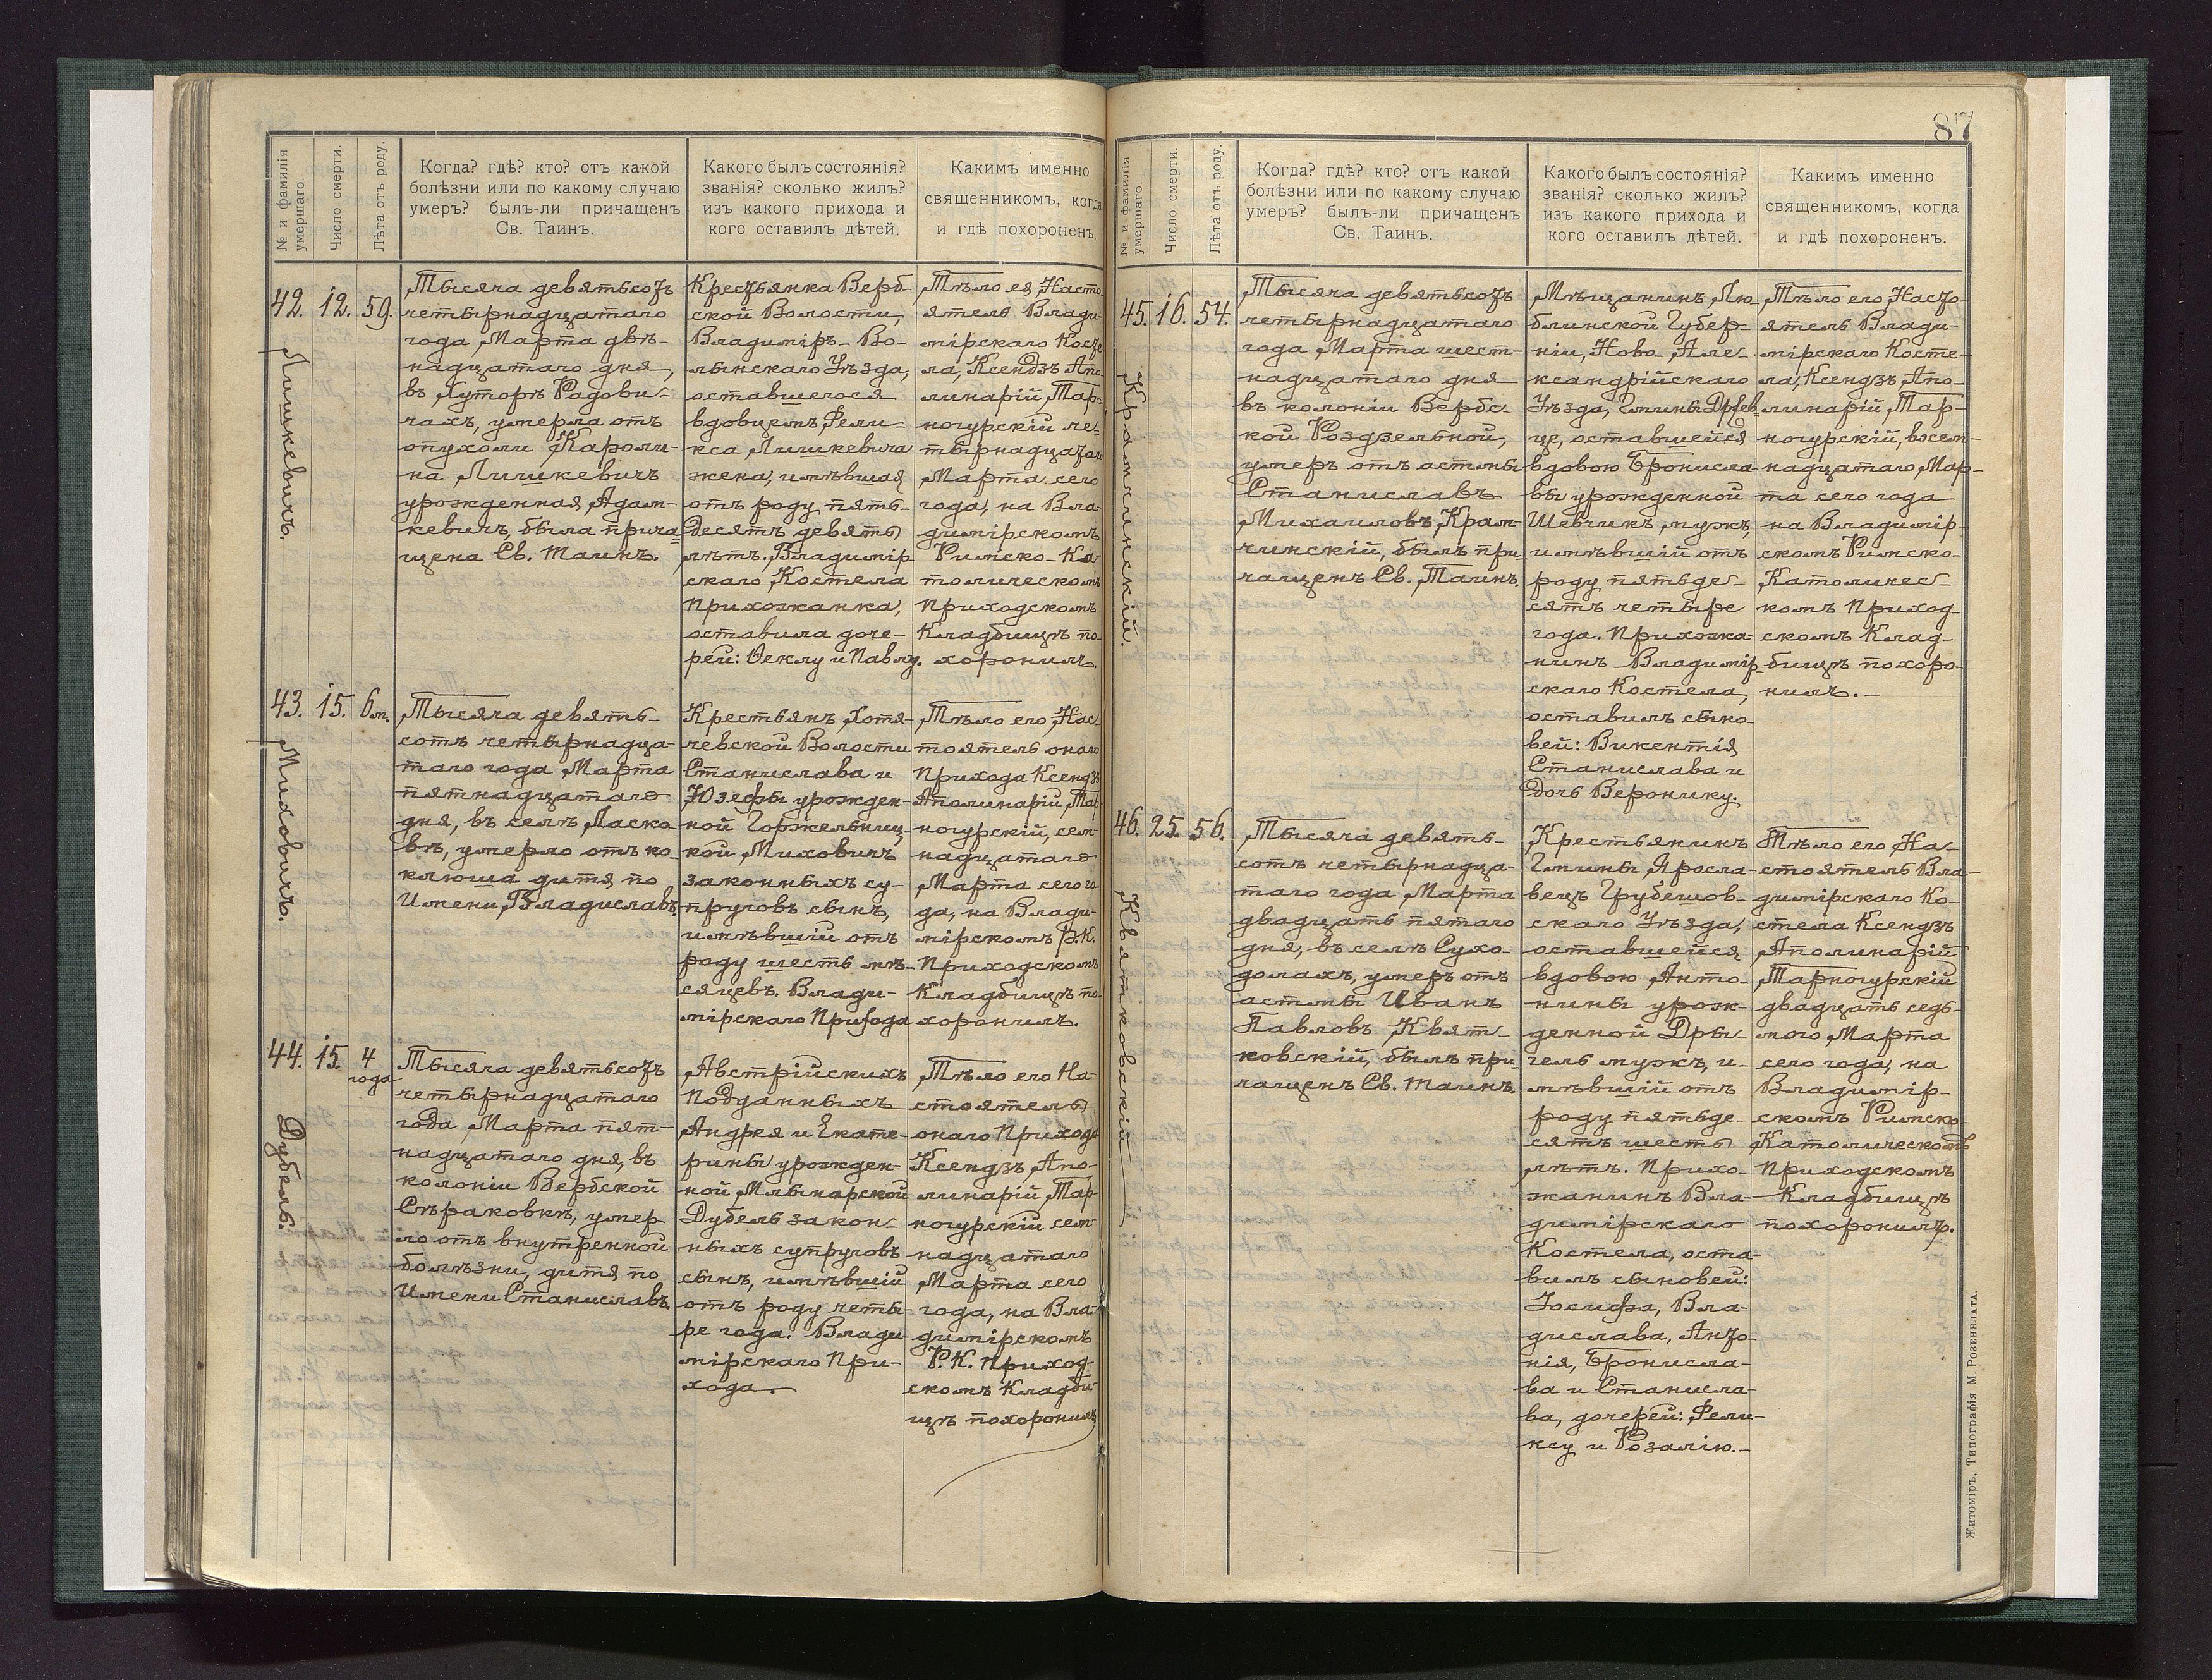 № и фамилія умершаго.
Число смерти.
Лѣта отъ роду.
Когда? гдѣ? кто? отъ какой
болѣзни или по какому случаю
умеръ? былъ-ли причащенъ
Св. Таинъ.
Какого былъ состоянія?
званія? сколько жилъ?
изъ какого прихода и
кого оставилъ дѣтей.
Какимъ именно
священникомъ, когда
и гдѣ похороненъ.
42. 12. 59.
Лишкевичъ.
Тысяча девятьсотъ
четырнадцатаго
года Марта двѣ-
надцатаго дня,
въ Хуторѣ Радови-
чахъ, умерла отъ
опухоли Кароли-
на Лишкевичъ
урожденная Адам-
кевичъ, была прича-
щена Св. Таинъ.
Крестьянка Верб-
ской Волости,
Владиміръ-Во-
лынскаго Уѣзда,
оставшегося
вдовцемъ, Фели-
кса Лишкевича
жена, имѣвшая
отъ роду пять-
десятъ девять
лѣтъ. Владимір
скаго Костела
Прихожанка,
оставила доче-
рей: Ѳеклу и Павлу.
Тѣло ея, Насто-
ятель Влади-
мірскаго Косте
ла, Ксендзъ Апо-
линарій Тар-
ногурскій че-
тырнадцатаго
Марта сего
года, на Вла-
димірскомъ
Римско-Ка-
толическомъ
Приходскомъ
Кладбищѣ по-
хоронилъ.
43. 15. 6 м.
Миховичъ.
Тысяча девять-
сотъ четырнадца-
таго года Марта
пятнадцатаго
дня, въ селѣ Ласко-
вѣ, умерло отъ ко-
клюша дитя, по
Имени, Владиславъ,
Крестьянъ Хотя-
чевской Волости
Станислава и
Юзефы урожден-
ной Горжельниц-
кой Миховичъ
законныхъ су-
пруговъ сынъ,
имѣвшій отъ
роду шесть мѣ-
сяцевъ. Влади-
мірскаго Прихода
Тѣло его, Нас-
тоятель онаго
Прихода Ксендзъ
Аполинарій Тар-
ногурскій, сем-
надцатаго
Марта сего го-
да, на Влади-
мірскомъ Р.К.
Приходскомъ
Кладбищѣ по-
хоронилъ.
44. 15. 4
года
Дубель.
Тысяча девятьсотъ
четырнадцатаго
года Марта пят-
надцатаго дня, въ
колоніи Вербской
Сѣраковкѣ, умер-
ло отъ внутренной
болѣзни, дитя по
Имени Станиславъ
Австрійскихъ
Подданныхъ
Андрея и Екате-
рины урожден-
ной Млынарской
Дубель закон-
ныхъ супруговъ
сынъ, имѣвшій
отъ роду четы-
ре года. Влади-
мірскаго При-
хода.
Тѣло его На-
стоятель
онаго Прихода
Ксендзъ Апо-
линарій Тар-
ногурскій сем-
надцатаго
Марта сего
года, на Вла-
димірскомъ
Р.К. Приход-
скомъ Кладби-
щѣ похоронилъ
87
№ и фамилія умершаго.
Число смерти.
Лѣта отъ роду.
Когда? гдѣ? кто? отъ какой
болѣзни или по какому случаю
умеръ? былъ-ли причащенъ
Св. Таинъ.
Какого былъ состоянія?
званія? сколько жилъ?
изъ какого прихода и
кого оставилъ дѣтей.
Какимъ именно
священникомъ, когда
и гдѣ похороненъ.
45. 16. 54.
Крамчинскій.
Тысяча девятьсотъ
четырнадцатаго
года Марта шест-
надцатаго дня
въ колоніи Вербс-
кой Роздзельной,
умеръ отъ астмы
Станиславъ
Михаиловъ, Крам-
чинскій, былъ при-
чащенъ Св. Таинъ.
Мѣщанинъ Лю-
блинской Губер-
ніи, Ново-Але-
ксандрійскаго
Уѣзда, Гмины Држев-
це, оставшейся
вдовою Бронисла-
вы урожденной
Шевчикъ, мужъ,
имѣвшій отъ
роду пятьде-
сятъ четыре
года. Прихожа-
нинъ Владимір-
скаго Костела,
оставилъ сыно-
вей: Викентія,
Станислава и
дочь Веронику.
Тѣло его, Насто-
ятель Влади-
мірскаго Косте-
ла, Ксендзъ Апо-
линарій Тар-
ногурскій, восем-
надцатаго Мар-
та сего года
на Владимір-
скомъ Римско-
Католичес-
комъ Приход-
скомъ Клад-
бищѣ похоро-
нилъ.-
46. 25. 56.
Квятковскій
Тысяча девять-
сотъ четырнадца-
таго года Марта
двадцать пятаго
дня, въ селѣ Сухо-
долахъ, умеръ отъ
астмы Иванъ
Павловъ Квят-
ковскій, былъ при-
чащенъ Св. Таинъ.
Крестьянинъ
Гмины Яросла-
вецъ Грубешов-
скаго Уѣзда,
оставшейся
вдовою Анто-
нины урож-
денной Дры-
гель мужъ, и-
мѣвшій отъ
роду пятьде-
сятъ шесть
лѣтъ. Прихо-
жанинъ Вла-
димірскаго
Костела, оста-
вилъ сыновей:
Іосифа, Вла-
дислава, Анто-
нія, Бронисла-
ва и Станисла-
ва, дочерей: Фели-
ксу и Розалію.-
Тѣло его На-
стоятель Вла-
димірскаго Ко-
стела Ксендзъ
Аполинарій
Тарногурскій
двадцать седь-
мого Марта
сего года, на
Владимір-
скомъ Римско-
Католическомъ
Приходскомъ
Кладбищѣ
похоронилъ.
Житоміръ, Типографія М. Розенблата.